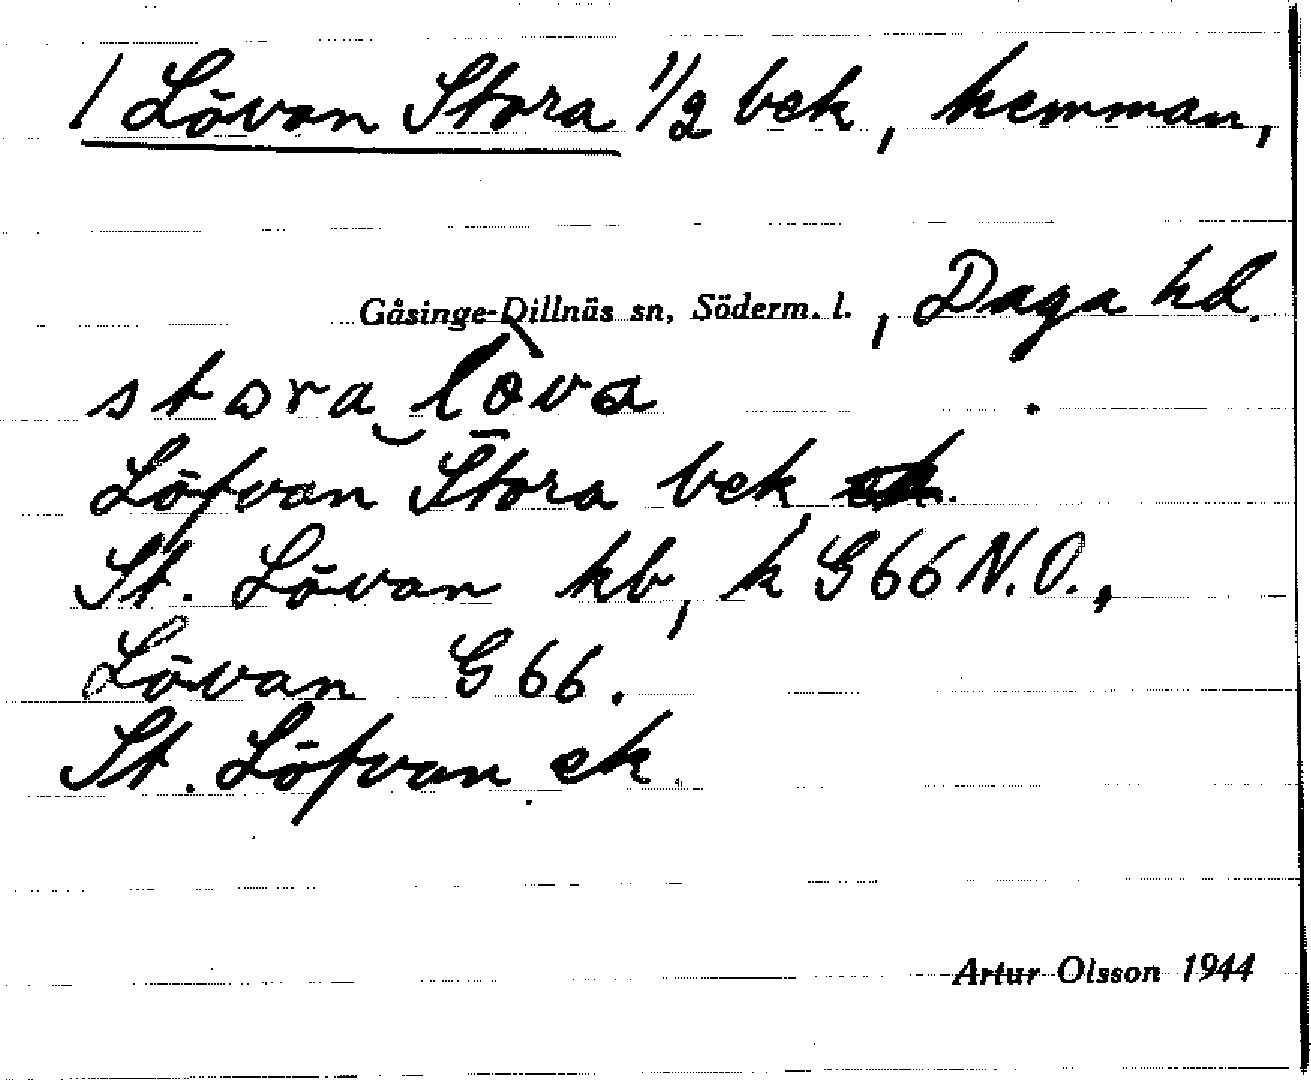 / Lövan Stora 1/2 bek, hemman,
Gåsinge-Dillnäs sn, Söderm. l., Daga hd.
stora löva
Löfvan Stora bek
St. Lövan kb, k G66 N.O.,
Lövan G 66.
St. Löfvan ek.
Artur Olsson 1944